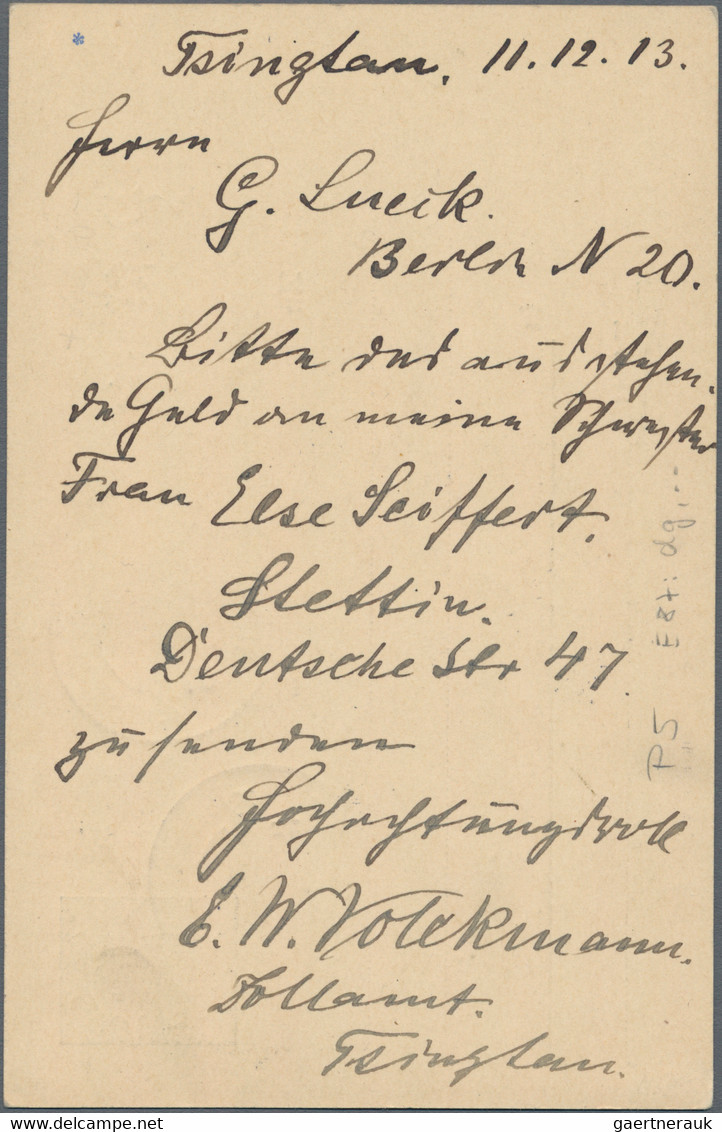 Tsingtau, 11.12.13.
Herrn
G. Lueck.
Berlin N 20.
Bitte das ausstehen-
de Geld an meine Schwester
Frau Else Seiffert.
Stettin.
Deutsche Str 47
zu senden
Hochachtungsvoll
E. W. Volckmann.
Zollamt.
Tsingtau.
P5
gaertnerauk